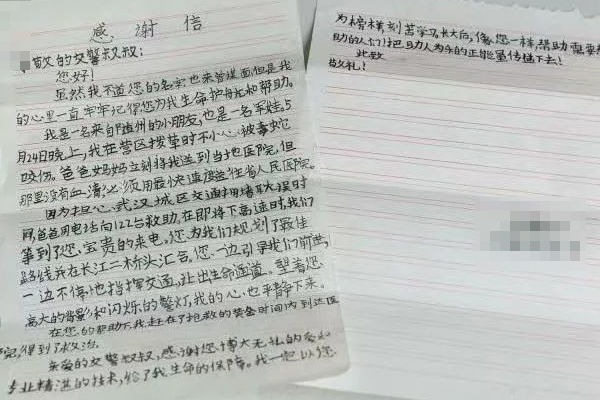 感谢信
敬的交警叔叔：
您好！
虽然我不道您的名字也未曾谋面但是我
的心里一直牢牢记得您为我生命护航和帮助。
我是一名来自随州的小朋友，也是一名军娃，5
月24日晚上，我在营区拔草时不小心被毒蛇
咬伤。爸爸妈妈立刻将我送到当地医院，但
那里没有血清，必须用最快速度送往省人民医院。
因为担心武汉城区交通拥堵耽误时
间，爸爸用电话向122台救助。在即将下高速时，我们
等到了您宝贵的来电。您为我们规划了最佳
路线并在长江二桥头汇合。您一边引导我们前进，
一边不停地指挥交通，让出生命通道。望着您
高大的背影和闪烁的警灯，我的心也平静下来。
在您的帮助下我赶在了抢救的黄金时间内到达医
院，得到了救治。
亲爱的交警叔叔，感谢您博大无私的爱和
专业精湛的技术，给了我生命的保障。我一定以您
为榜样刻苦学习，长大后，像您一样帮助需要
助的人们！把助人为乐的正能量传播下去！
此致
敬礼！